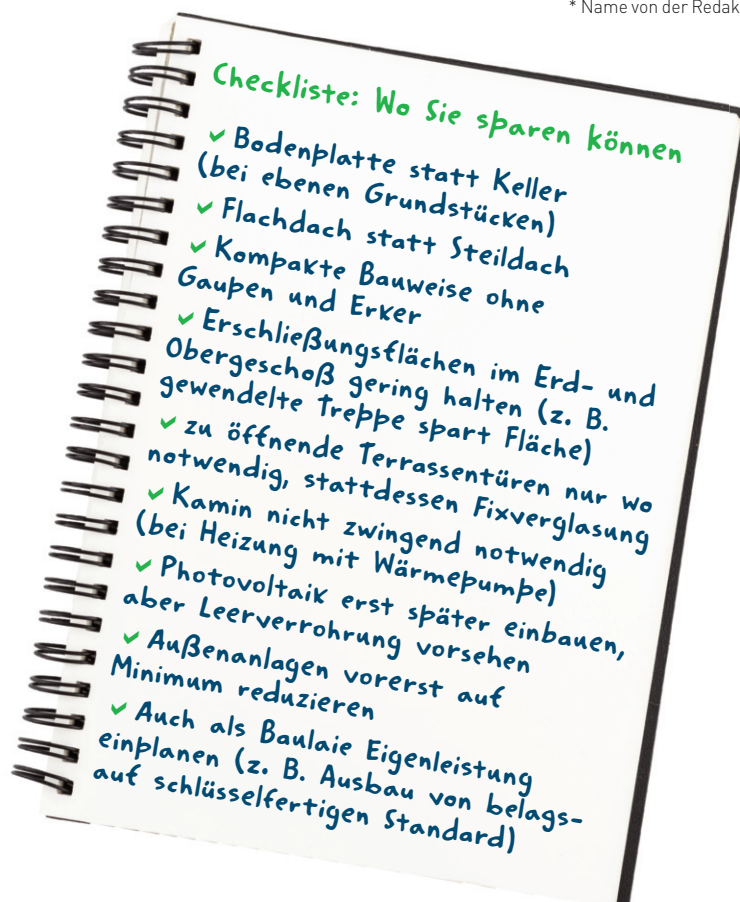 * Name von der Redak
Checkliste: Wo Sie sparen können
✔ Bodenplatte statt Keller
(bei ebenen Grundstücken)
✔ Flachdach statt Steildach
✔ Kompakte Bauweise ohne
Gaupen und Erker
✔ Erschließungsflächen im Erd- und
Obergeschoß gering halten (z. B.
gewendelte Treppe spart Fläche)
✔ zu öffnende Terrassentüren nur wo
notwendig, stattdessen Fixverglasung
✔ Kamin nicht zwingend notwendig
(bei Heizung mit Wärmepumpe)
✔ Photovoltaik erst später einbauen,
aber Leerverrohrung vorsehen
✔ Außenanlagen vorerst auf
Minimum reduzieren
✔ Auch als Baulaie Eigenleistung
einplanen (z. B. Ausbau von belags-
auf schlüsselfertigen Standard)